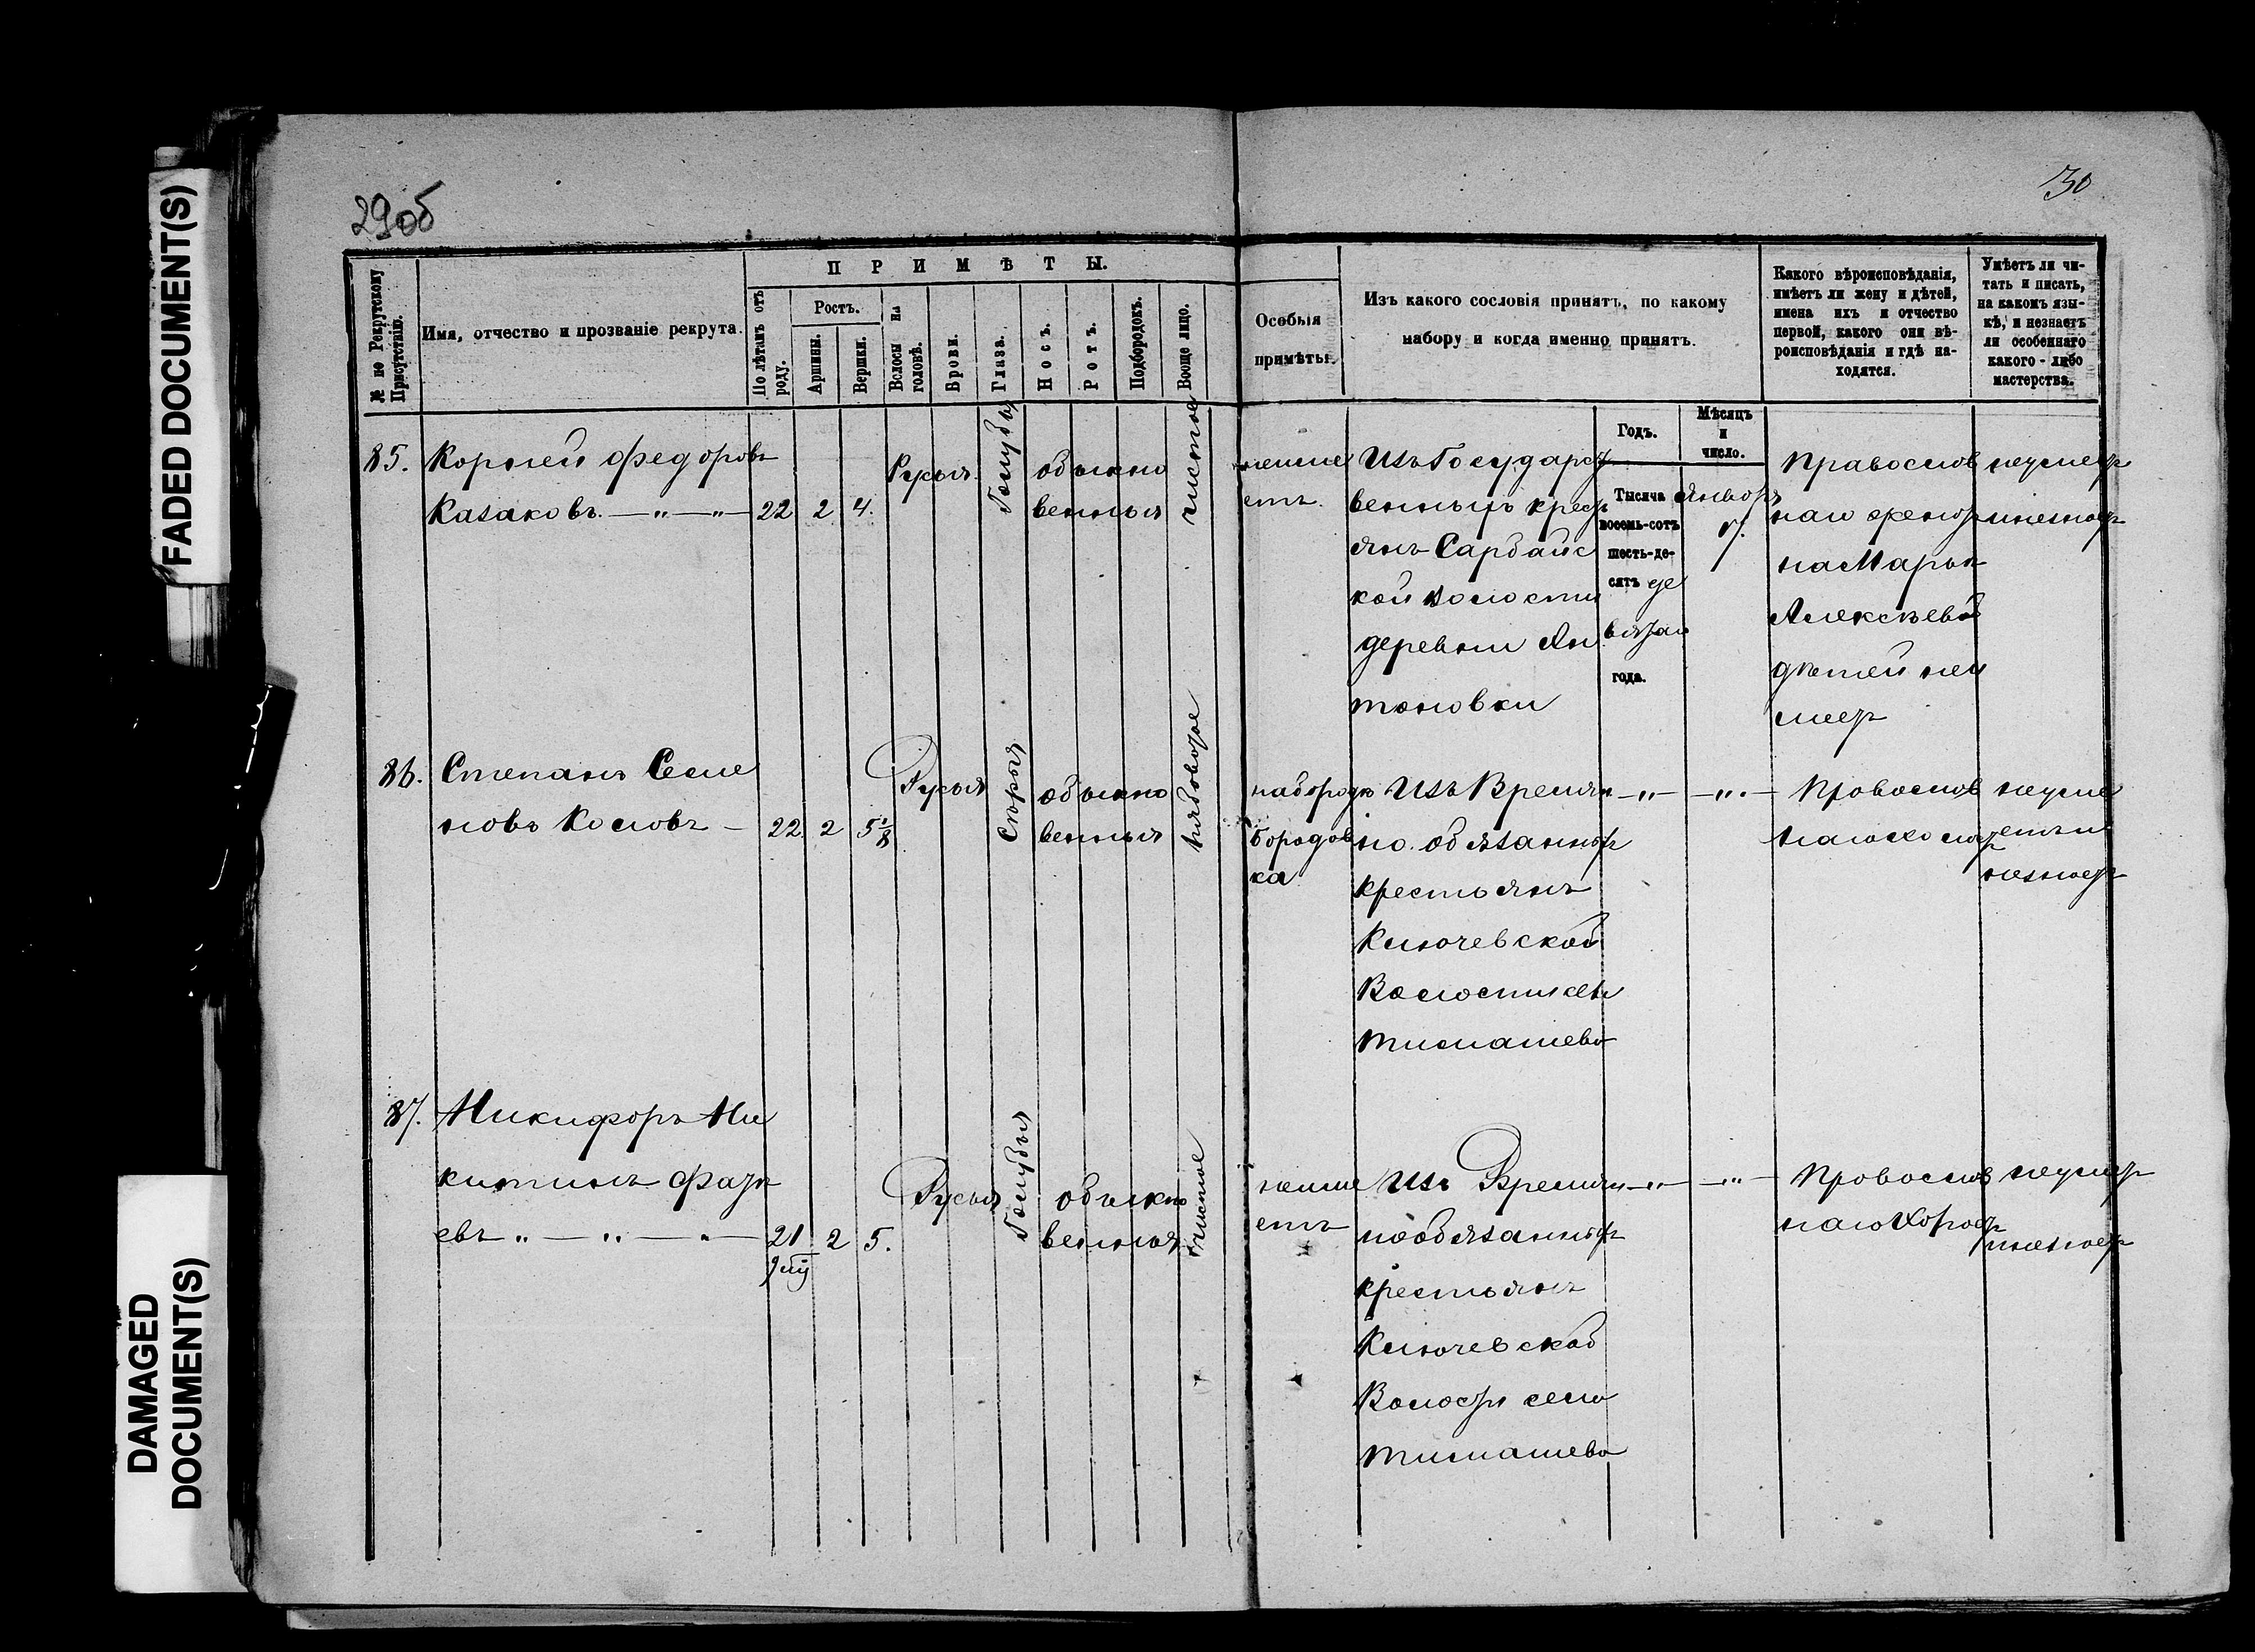 FADED DOCUMENT(S)
DAMAGED
DOCUMENT(S)
29об
30
№ по Рекрутскому
Присутствію.
Имя, отчество и прозваніе рекрута.
ПРИМѢТЫ.
По лѣтамъ отъ
роду.
Ростъ.
Аршины.
Вершки.
Волосы на
головѣ.
Брови.
Глаза.
Носъ.
Ротъ.
Подбородокъ.
Вообще лицо.
Особыя
примѣты.
Изъ какого сословія принятъ, по какому
набору и когда именно принятъ.
Какого вѣроисповѣданія,
имѣетъ ли жену и дѣтей,
имена ихъ и отчество
первой, какого они вѣ-
роисповѣданія и гдѣ на-
ходятся.
Умѣетъ ли чи-
тать и писать,
на какомъ язы-
кѣ, и незнаетъ
ли особеннаго
какого-либо
мастерства.
Годъ.
Мѣсяцъ
и
число.
85. Корнеи Федоровъ
Казаковъ — „ — „ — 22 2 4.
Русыя
Голубыя
обыкно
венныя
чистое
неиме
етъ.
Изъ Государст
венныхъ кресть
янъ Сарбайс
кой волости
деревни Ан
тоновки
Тысяча
восемь-сотъ
шесть-де-
сятъ де
вятаго
года.
Январь
Православ
наго женатъ
на Марье
Алексѣевой
дѣтей неи
меетъ
неумеетъ
инезнаетъ
86. Степанъ Семе
новъ Козловъ — 22 2 5 1/8
Русыя
Сѣрыя
обыкно
венныя
набороде
бородов
ка
Изъ Времян
но. обязанныхъ
крестьянъ
Ключевской
Волости села
Тимашево
— „ — — „ —
Православ
наго холостъ
неуме
етъ и
незнаетъ
87. Никифоръ Ни
китинъ Фаде
евъ „ — „ — „ — 21 2 5.
Русыя
Голубыя
обыкно
венныя
чистое
неиме
етъ
Изъ Времян
нообязанныхъ
крестьянъ
Ключевской
Волости село
Тимашево
— „ — — „ —
Православ
наго Холостъ
неумеетъ
инезнаетъ